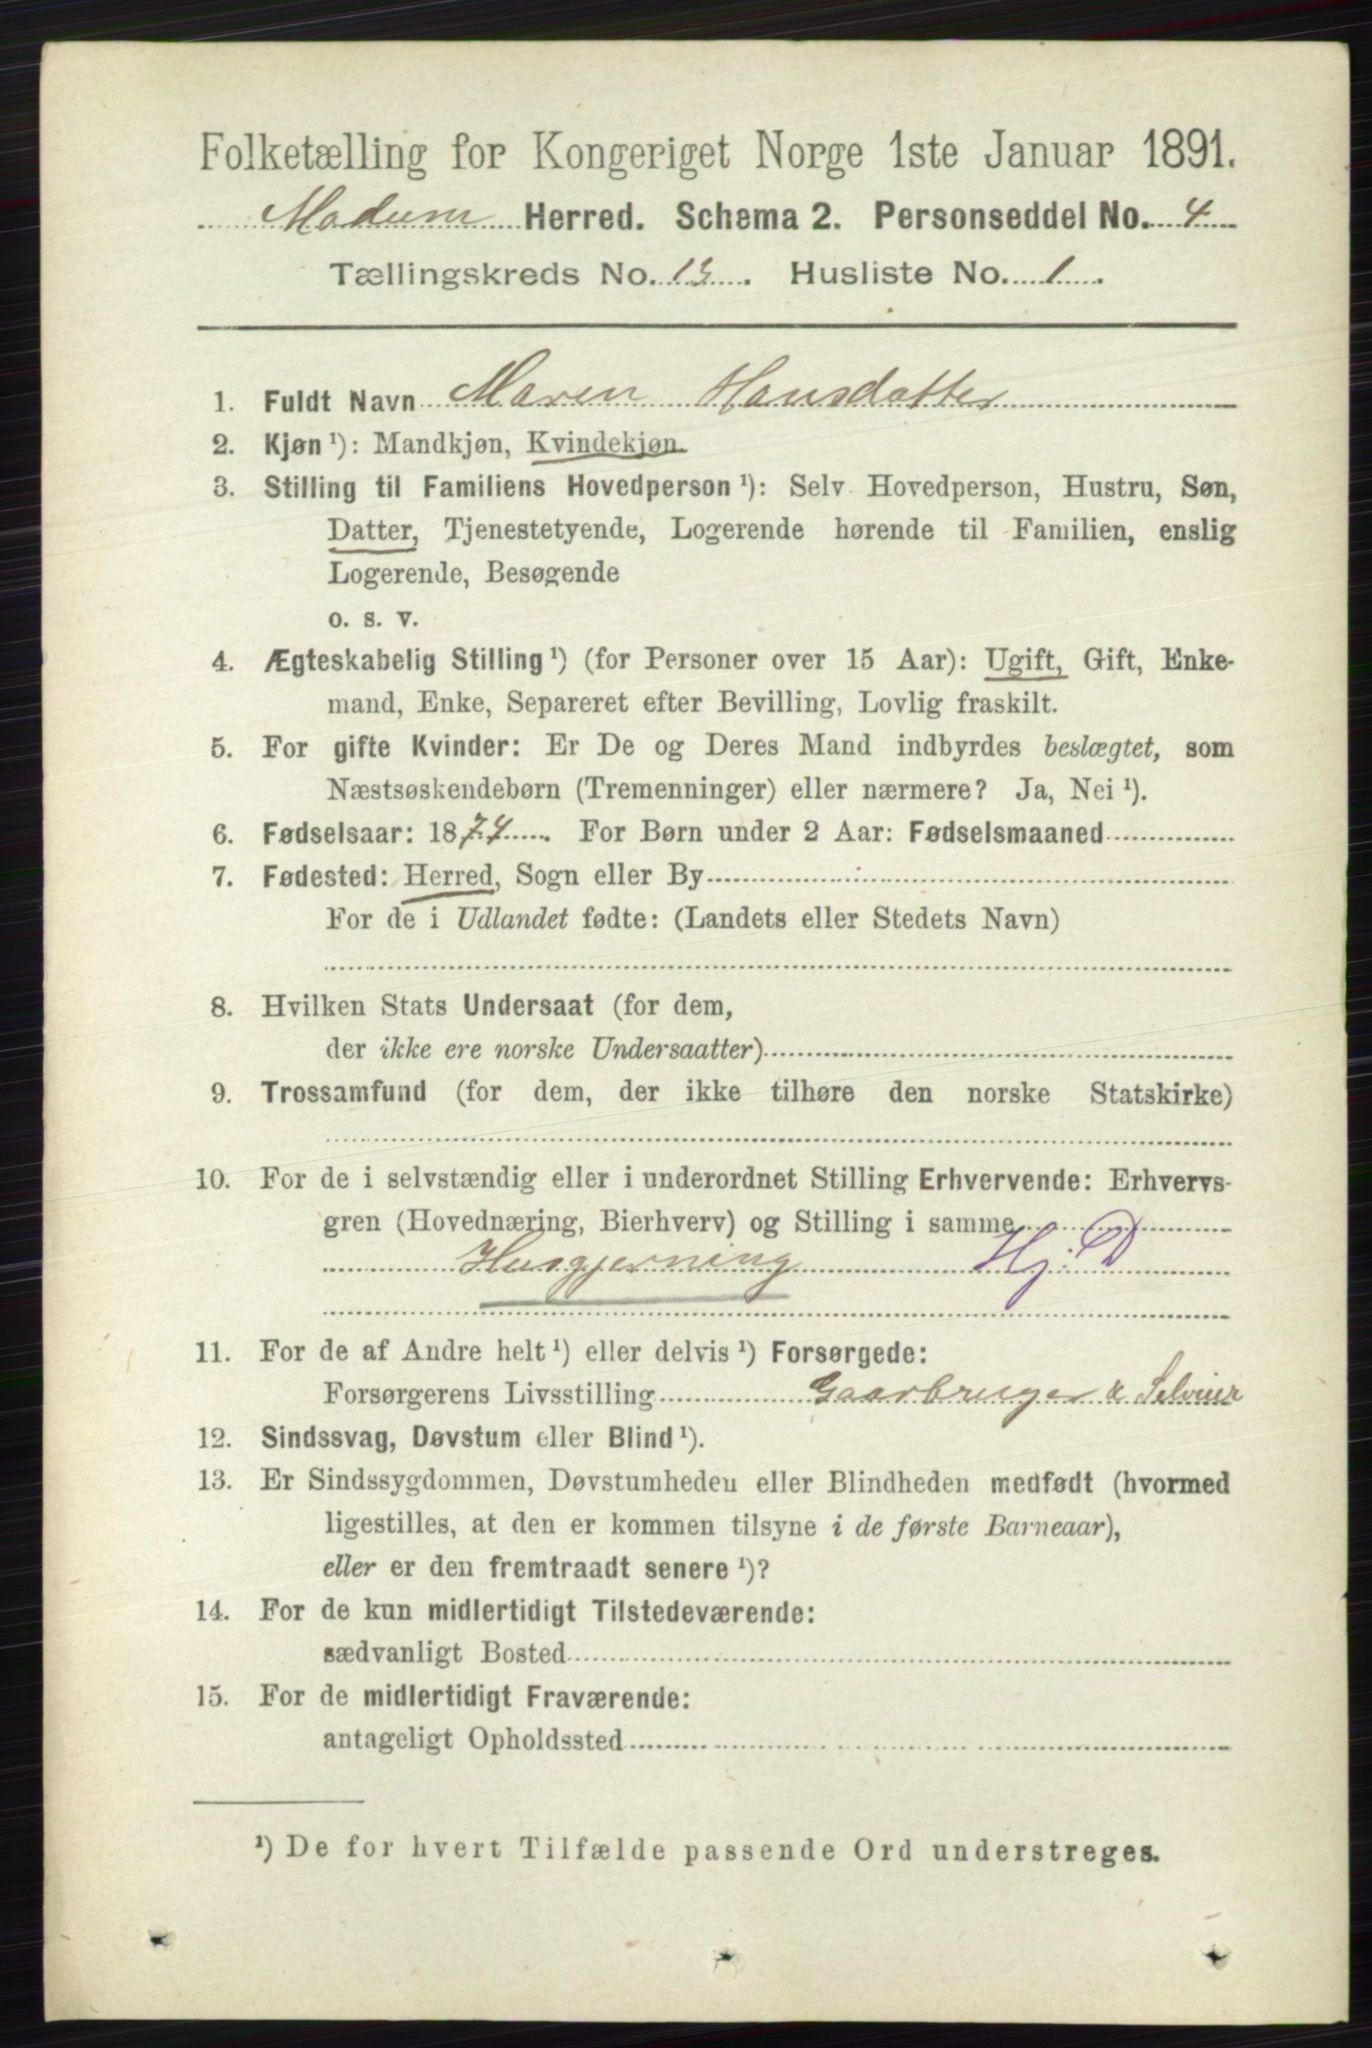 Folketælling for Kongeriget Norge 1ste Januar 1891.
Modum Herred. Schema 2. Personseddel No. 4
Tællingskreds No. 13. Husliste No. 1.
1. Fuldt Navn Maren Hansdatter
2. Kjøn ¹): Mandkjøn, Kvindekjøn.
3. Stilling til Familiens Hovedperson ¹): Selv Hovedperson, Hustru, Søn,
Datter, Tjenestetyende, Logerende hørende til Familien, enslig
Logerende, Besøgende
o. s. v.
4. Ægteskabelig Stilling ¹) (for Personer over 15 Aar): Ugift, Gift, Enke-
mand, Enke, Separeret efter Bevilling, Lovlig fraskilt.
5. For gifte Kvinder: Er De og Deres Mand indbyrdes beslægtet, som
Næstsøskendebørn (Tremenninger) eller nærmere? Ja, Nei ¹).
6. Fødselsaar: 1874. For Børn under 2 Aar: Fødselsmaaned
7. Fødested: Herred, Sogn eller By
For de i Udlandet fødte: (Landets eller Stedets Navn)
8. Hvilken Stats Undersaat (for dem,
der ikke ere norske Undersaatter)
9. Trossamfund (for dem, der ikke tilhøre den norske Statskirke)
10. For de i selvstændig eller i underordnet Stilling Erhvervende: Erhvervs-
gren (Hovednæring, Bierhverv) og Stilling i samme
Husgjerning Hj. D
11. For de af Andre helt ¹) eller delvis ¹) Forsørgede:
Forsørgerens Livsstilling Gaarbruger & Selveier
12. Sindssvag, Døvstum eller Blind ¹).
13. Er Sindssygdommen, Døvstumheden eller Blindheden medfødt (hvormed
ligestilles, at den er kommen tilsyne i de første Barneaar),
eller er den fremtraadt senere ¹)?
14. For de kun midlertidigt Tilstedeværende:
sædvanligt Bosted
15. For de midlertidigt Fraværende:
antageligt Opholdssted
¹) De for hvert Tilfælde passende Ord understreges.